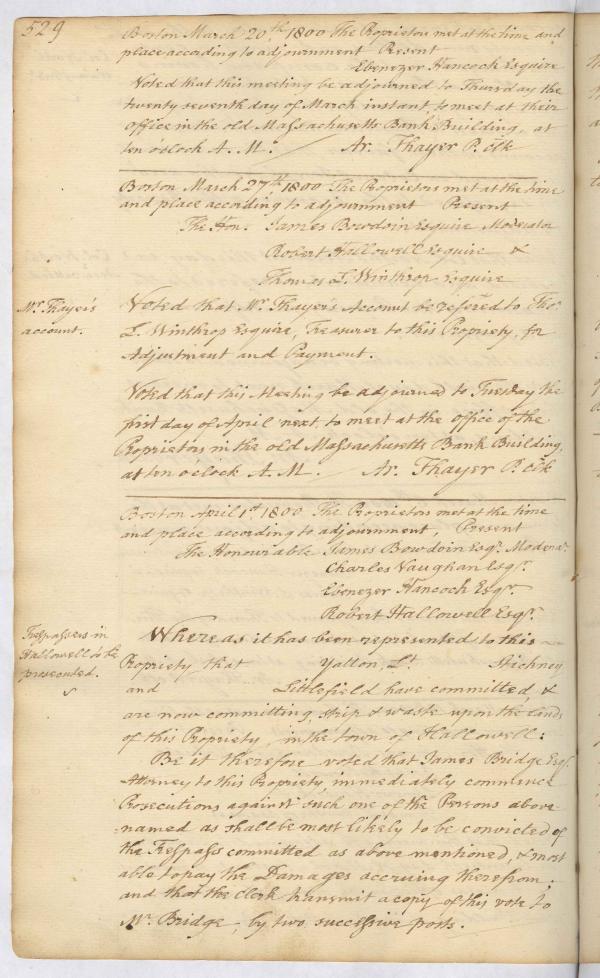 529
Boston March 20th 1800 The Proprietors met at the time and
place according to adjournment Present
Ebenezer Hancock Esquire
Voted that this meeting be adjourned to Thursday the
twenty seventh day of March instant to meet at their
office in the old Massachusetts Bank Building, at
ten oClock A.M. Ar. Thayer P. Clk
Boston March 27th 1800 The Proprietors met at the time
and place according to adjournment Present
The Hon. James Bowdoin Esquire Moderator
Robert Hallowell Esquire &
Thomas L. Winthrop Esquire
Mr. Thayer's
account.
Voted that Mr. Thayer's Account be refered to Thos.
L. Winthrop Esquire, Treasurer to this Propriety, for
Adjustment and Payment.
Voted that this Meeting be adjourned to Tuesday the
first day of April next, to meet at the office of the
Proprietors in the old Massachusetts Bank Building,
at ten oClock A.M. Ar. Thayer P. Clk
Boston April 1st 1800 The Proprietors met at the time
and place according to adjournment, Present
The Honourable James Bowdoin Esqr. Moderr.
Charles Vaughan Esqr.
Ebenezer Hancock Esqr.
Robert Hallowell Esqr.
Trespassers in
Hallowell to be
prosecuted.
Whereas it has been represented to this
Propriety, that Yallon, Lt. Stichney
and Littlefield have committed, &
are now committing, strip & waste upon the lands
of this Propriety, in the town of Hallowell:
Be it therefore voted that James Bridge Esqr.
Attorney to this Propriety, immediately commence
Prosecutions against such one of the Persons above
named as shall be most likely to be convicted of
the Trespass committed as above mentioned, & most
able to pay the Damages accruing therefrom;
and that the Clerk transmit a copy of this vote to
Mr. Bridge, by two successive posts.